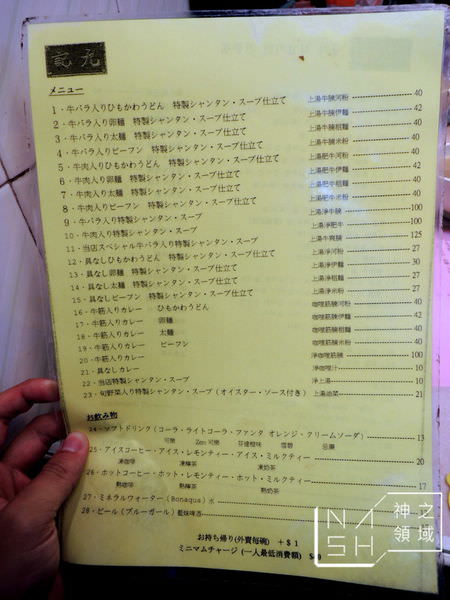 記九
メニュー
1・牛バラ入りひもかわうどん 特製シャンタン・スープ仕立て 上湯牛腩河粉 40
2・牛バラ入り卵麺 特製シャンタン・スープ仕立て 上湯牛腩伊麵 42
3・牛バラ入り太麺 特製シャンタン・スープ仕立て 上湯牛腩粗麵 40
4・牛バラ入りビーフン 特製シャンタン・スープ仕立て 上湯牛腩米粉 40
5・牛肉入りひもかわうどん 特製シャンタン・スープ仕立て 上湯肥牛河粉 40
6・牛肉入り卵麺 特製シャンタン・スープ仕立て 上湯肥牛伊麵 42
7・牛肉入り太麺 特製シャンタン・スープ仕立て 上湯肥牛粗麵 40
8・牛肉入りビーフン 特製シャンタン・スープ仕立て 上湯肥牛米粉 40
9・牛バラ入り特製シャンタン・スープ 上湯淨牛腩 100
10・牛肉入り特製シャンタン・スープ 上湯淨肥牛 100
11・当店スペシャル牛バラ入り特製シャンタン・スープ 上湯牛爽腩 125
12・具なしひもかわうどん 特製シャンタン・スープ仕立て 上湯淨河粉 27
13・具なし卵麺 特製シャンタン・スープ仕立て 上湯淨伊麵 30
14・具なし太麺 特製シャンタン・スープ仕立て 上湯淨粗麵 27
15・具なしビーフン 特製シャンタン・スープ仕立て 上湯淨米粉 27
16・牛筋入りカレー ひもかわうどん 咖喱筋腩河粉 40
17・牛筋入りカレー 卵麺 咖喱筋腩伊麵 42
18・牛筋入りカレー 太麺 咖喱筋腩粗麵 40
19・牛筋入りカレー ビーフン 咖喱筋腩米粉 40
20・牛筋入りカレー 淨咖喱筋腩 100
21・具なしカレー 淨咖喱汁 10
22・当店特製シャンタン・スープ 淨上湯 10
23・旬野菜入り特製シャンタン・スープ(オイスター・ソース付き) 上湯油菜 21
お飲み物
24・ソフトドリンク(コーラ・ライトコーラ・ファンタ オレンジ・クリームソーダ) 13
可樂 Zero可樂 芬達橙味 雪碧 忌廉
25・アイスコーヒー・アイス・レモンティー・アイス・ミルクティー 20
凍咖啡 凍檸茶 凍奶茶
26・ホットコーヒー・ホット・レモンティー・ホット・ミルクティー 17
熱咖啡 熱檸茶 熱奶茶
27・ミネラルウォーター(Bonaqua)水
28・ビール(ブルーガール)藍妹啤酒
お持ち帰り(外賣每碗) +$1
ミニマムチャージ (一人最低消費額)
NASH 神之領域